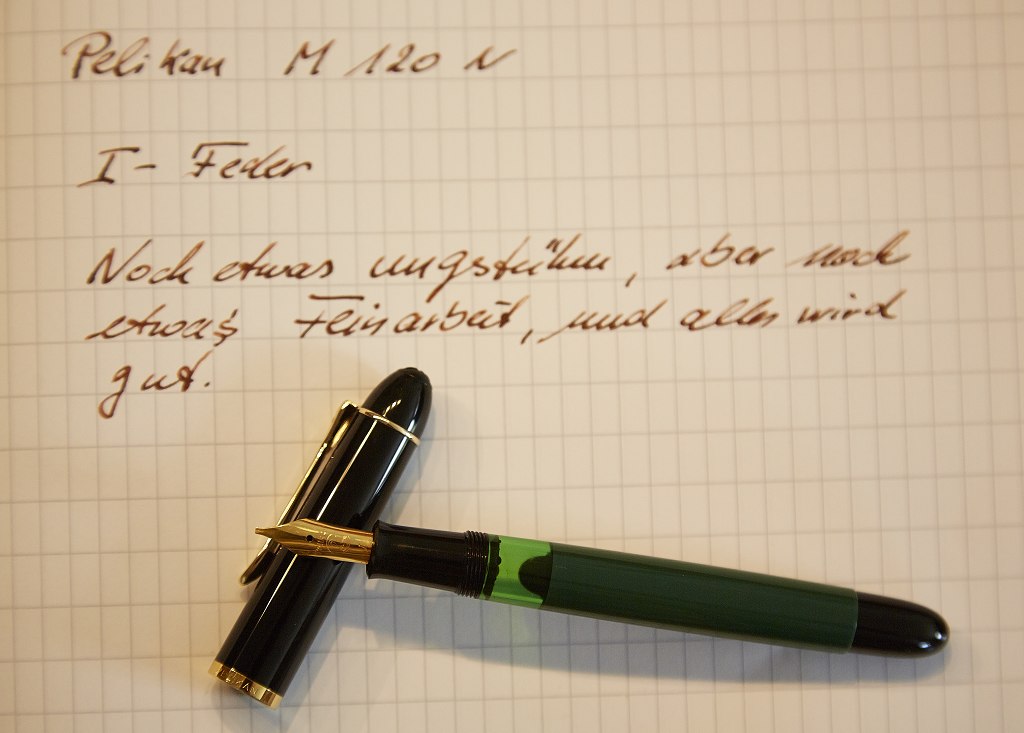 Pelikan M 120 N
I- Feder
Noch etwas ungstühm, aber noch
etwas Feinarbeit, und alles wird
gut.